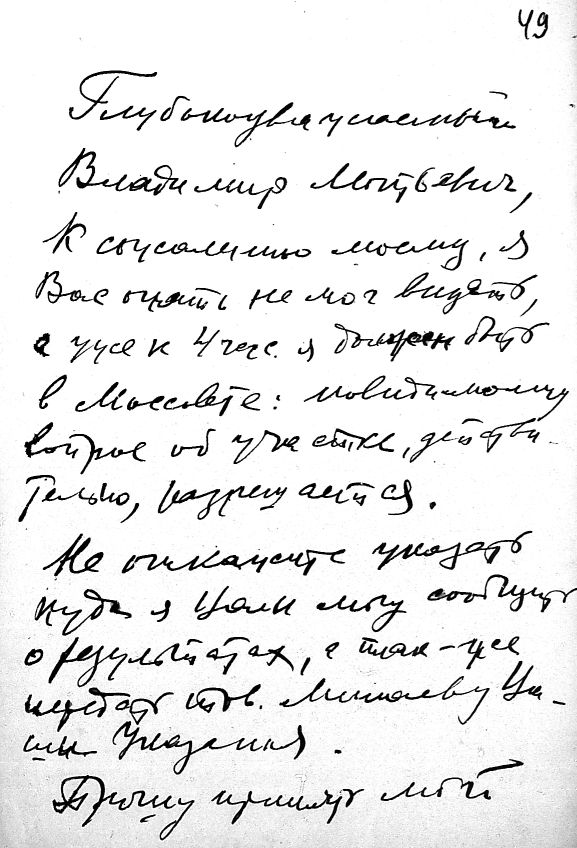 49
Глубокоуважаемый
Владимир Матвевич,
К сожалению моему, я
Вас опять не мог видеть,
а уже к 4 час. я должен быть
в Моссовете: повидимому
вопрос об участке, действи-
тельно, разрешается.
Не откажите указать
куда я Вам могу сообщить
о результатах, а так-же
передать тов. Минаеву Ва-
ши Указания.
Прошу принять мой